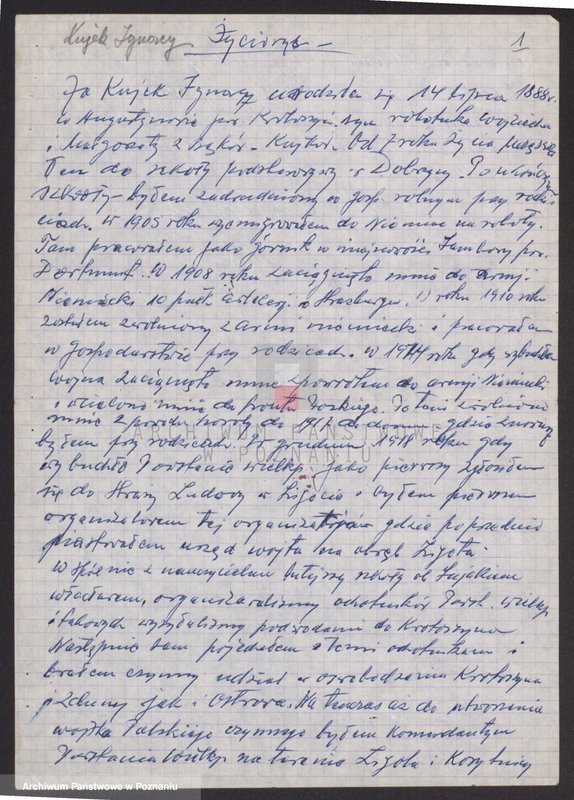 Kujek Ignacy
Życiorys
1
Ja Kujek Ignacy urodziłem się 14 lipca 1888 r.
w Augustynowie pow. Krotoszyn. syn robotnika Wojciecha
i Małgorzaty z Kujków. Od 7 roku życia
łem do szkoły podstawowej w Dobrzycy. Po ukończ.
szkoły byłem zatrudniony w gosp. rolnym przy rodzi
cach. w 1905 roku wyemigrowałem do Niemiec na roboty.
Tam pracowałem jako górnik w miejscowości pow.
Dortmunt. W 1908 roku zaciągnięto mnie do armji
Niemieckiej 10 pułk w Strazburgu. W roku 1910 roku
zostałem zwolniony z armi niemieckiej i pracowałem
w gospodarstwie przy rodzicach. w 1914 roku gdy wybuchła
wojna zaciągnięto mnie zpowrotem do armji Niemieckiej
i wcielono mnie do frontu Potem zwolniono
mnie z powodu do domu gdzie
byłem przy rodzicach. W grudniu 1918 roku gdy
wybuchło Powstanie wielkp. jako pierwszy zgłosiłem
się do Straży Ludowej w Ligocie i byłem pierwszym
organizatorem tej organizacji gdzie poprzednio
piastowałem urząd wójta na okręg Ligota
wspólnie z nauczycielem tutejszej szkoły ob.
organizowaliśmy odział Powst. wielkp
i takowych wysyłaliśmy podwodami do Krotoszyna
Następnie sam pojechałem z temi odziałami i
brałem czynny udział w oswobodzeniu Krotoszyna
i Zduny jak i Ostrowa. Natomiast aż do utworzenia
wojska Polskiego czynnego byłem komendantem
Powstania Wielkp na terenie Ligota i Korytnicy
ARCHIWUM PAŃSTWOWE
W POZNANIU
Archiwum Państwowe w Poznaniu